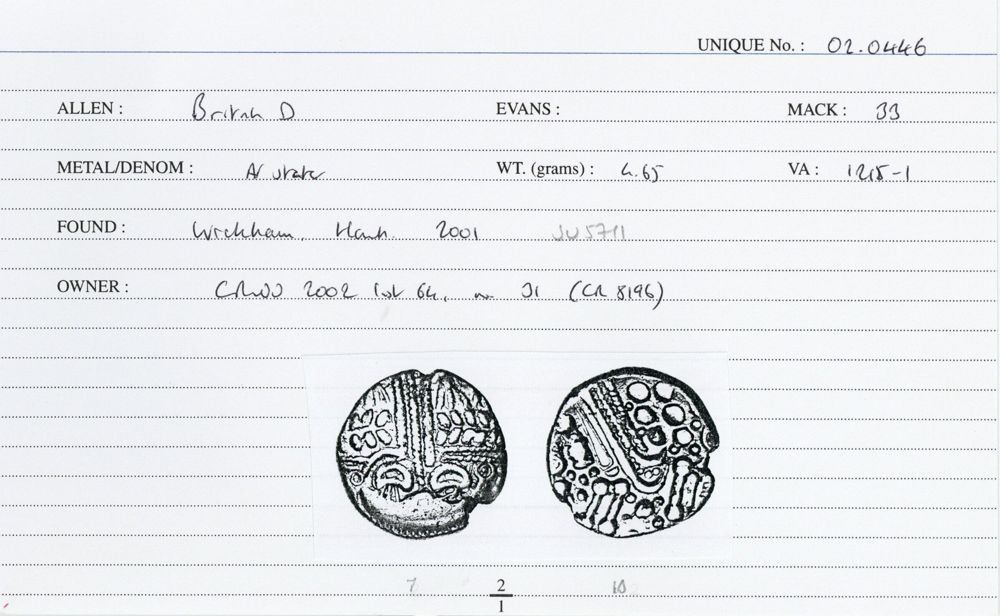 UNIQUE No. : 02.0446
ALLEN : British D EVANS : MACK : 33
METAL/DENOM : AV stater WT. (grams) : 4.65 VA : 1215-1
FOUND : Wickham, Hants. 2001 SU5711
OWNER : CR 2002 list 64, no 31 (CR 8196)
7 2 10
1